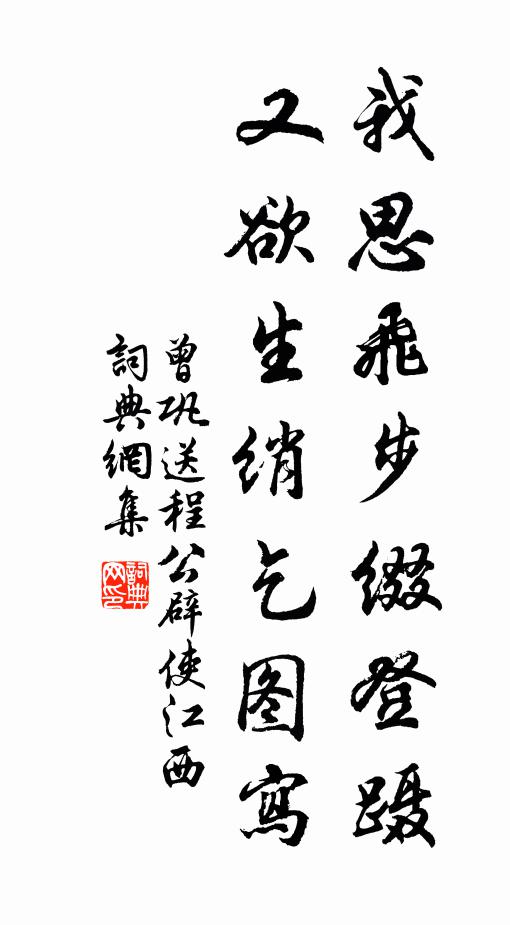 我思飛步綴登蹑
又欲生绡乞图寫
曾巩送程公辟使江西
詞典網集
詞典网印